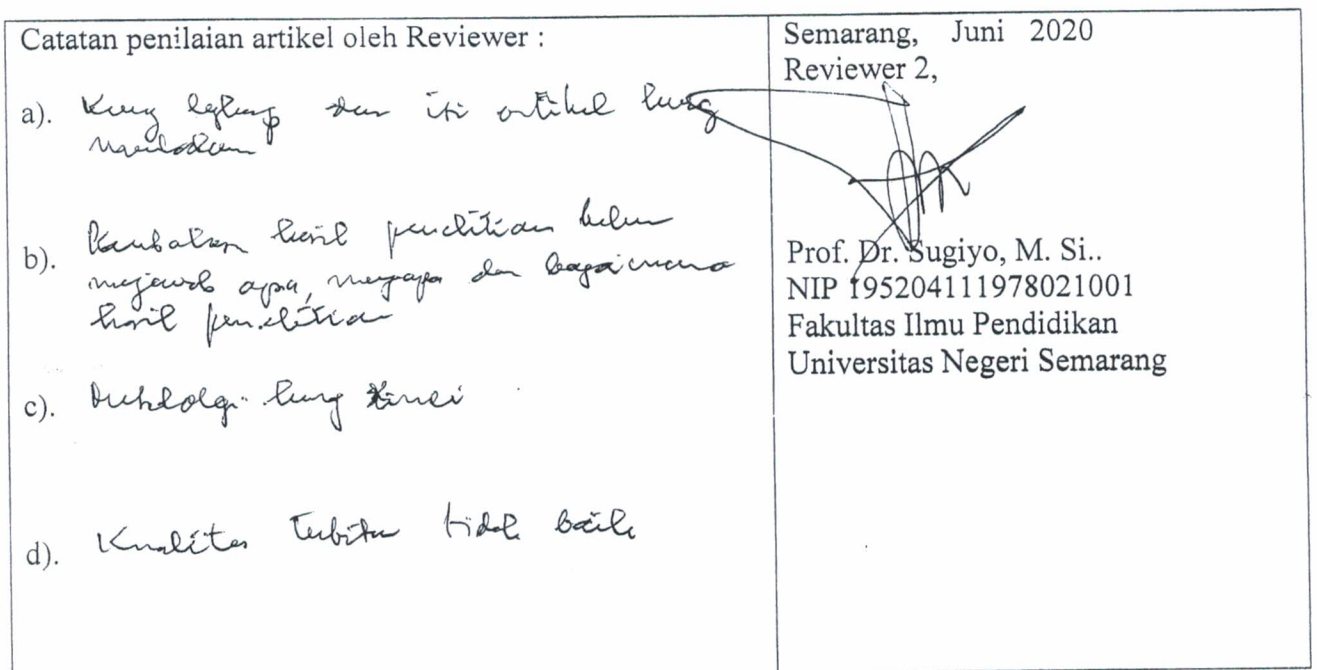 Catatan penilaian artikel oleh Reviewer :
a). Kurang lengkap dan isi artikel kurang
b). hasil penelitian belum
menjawab apa, mengapa dan bagaimana
hasil penelitian
c). kurang
d). Kualitas Terbitan tidak baik
Semarang, Juni 2020
Reviewer 2,
Prof. Dr. Sugiyo, M. Si..
NIP 195204111978021001
Fakultas Ilmu Pendidikan
Universitas Negeri Semarang